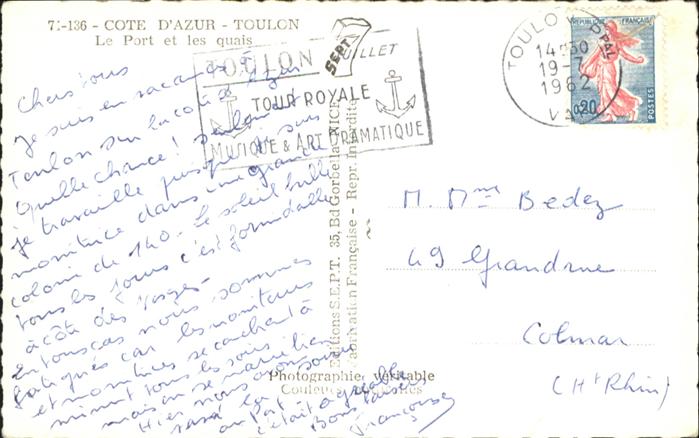 71-136 - COTE D'AZUR - TOULON
Le Port et les quais
TOULON
JUILLET
7
SEPT
TOUR ROYALE
MUSIQUE & ART DRAMATIQUE
TOULON PPAL
14H30
19-7
1962
VAR
REPUBLIQUE FRANÇAISE
0,20
POSTES
Chers tous
Je suis en vacances à
Toulon sur la côte d'Azur
Quelle chance! Seulement
je travaille puisque je suis
monitrice dans une grande
colonie de 140 - le soleil brille
tous les jours c'est formidable
à côté des Vosges -
En tous cas nous sommes
fatigués car les moniteurs
et monitrices se couchent à
minuit tous les soirs
mais on se marre bien
Hier nous avons
au port
c'était agréable
Bons baisers
Françoise
Editions S.E.P.T. 35, Bd Gorbella, NICE
Fabrication Française - Repr. Interdite
Photographie Véritable
M. Mme Bedez
49 Grandrue
Colmar
(Ht Rhin)